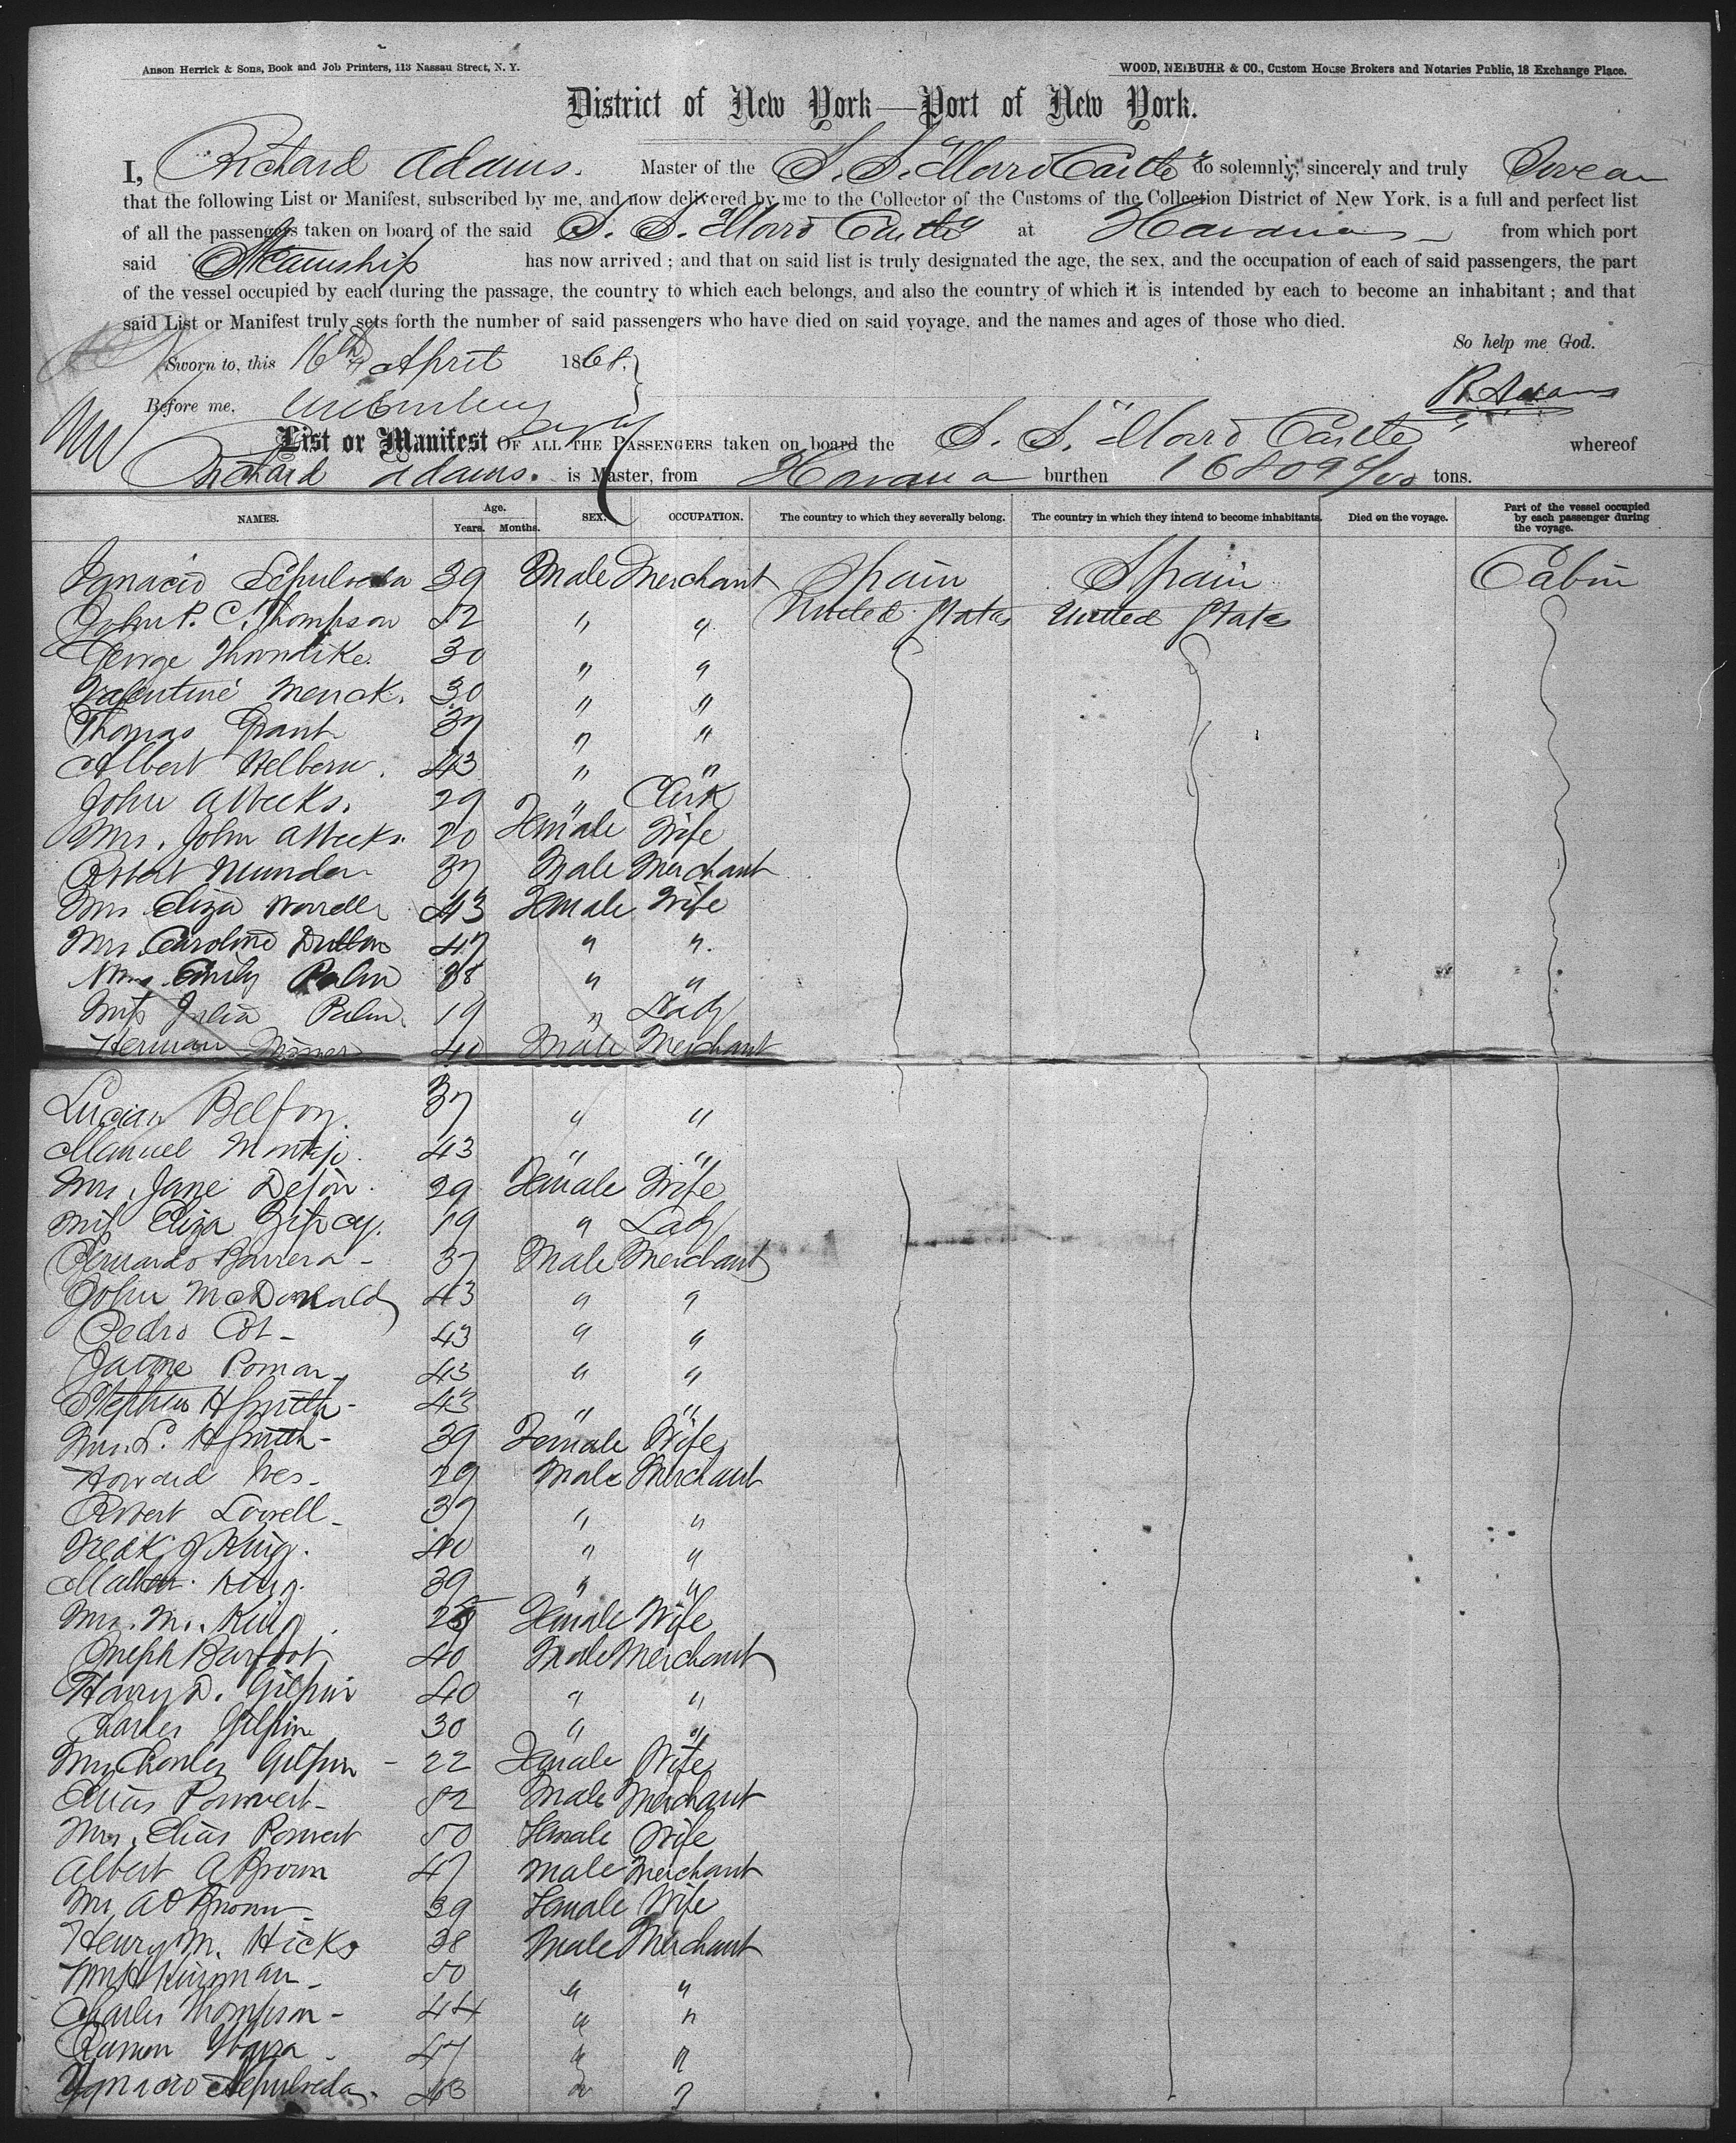 Anson Herrick & Sons, Book and Job Printers, 113 Nassau Street, N. Y.
WOOD, NEIBUHR & CO., Custom House Brokers and Notaries Public, 18 Exchange Place.
District of New York—Port of New York.
I, Richard Adams. Master of the S. S. "Morro Castle" do solemnly, sincerely and truly Swear
that the following List or Manifest, subscribed by me, and now delivered by me to the Collector of the Customs of the Collection District of New York, is a full and perfect list
of all the passengers taken on board of the said S. S. "Morro Castle" at Havana from which port
said Steamship has now arrived ; and that on said list is truly designated the age, the sex, and the occupation of each of said passengers, the part
of the vessel occupied by each during the passage, the country to which each belongs, and also the country of which it is intended by each to become an inhabitant ; and that
said List or Manifest truly sets forth the number of said passengers who have died on said voyage, and the names and ages of those who died.
So help me God.
Sworn to, this 16th April 1868.
R. Adams
Before me,
List or Manifest OF ALL THE PASSENGERS taken on board the S. S. "Morro Castle" whereof
Richard Adams. is Master, from Havana burthen tons.
NAMES. Age. Years. Months. SEX. OCCUPATION. The country to which they severally belong. The country in which they intend to become inhabitants. Died on the voyage. Part of the vessel occupied by each passenger during the voyage.
Ignacio Sepulveda 39 Male Merchant Spain Spain Cabin
John P. C. Thompson 52 " " United States United States
George Thorndike. 30 " "
Valentine Merick. 30 " "
Thomas Grant 37 " "
Albert Helbern. 43 " "
John A Weeks. 29 " Clerk
Mrs. John A Weeks. 20 Female Wife
Robert Munder 37 Male Merchant
Mrs Eliza Worrell 43 Female Wife
Mrs. Caroline Dutton 47 " ".
Mrs Emily Palm 38 " "
Miss Julia Palm. 19 " Lady
Herman 40 Male Merchant
Lucian 37 " "
Manuel Montejo. 43 " "
Mrs. Jane 29 Female Wife
Miss Eliza 19 " Lady
Bernardo Barrera - 37 Male Merchant
John McDonald 43 " "
Pedro Cot - 43 " "
Jaime Pomar - 43 " "
Stephen H Smith - 43 " "
Mrs. S. H Smith - 39 Female Wife
Howard Ives - 29 Male Merchant
Robert Lowell - 37 " "
Fredk. J King. 40 " "
King. 39 " "
Mrs. M. King. Female Wife
Joseph Barfoot 40 Male Merchant
Harry D. Gilpin 40 " "
Charles Gilpin 30 " "
Mrs Charles Gilpin - 22 Female Wife
Elias Ponvert - 52 Male Merchant
Mrs. Elias Ponvert 50 Female Wife
Albert A Brown 47 Male Merchant
Mrs A Brown - 39 Female Wife
Henry M. Hicks 38 Male Merchant
Wm H Kinsman - 50 " "
Charles Thompson - 44 " "
Ramon Ybarra - 47 " "
Ygnacio Sepulveda. 43 " "